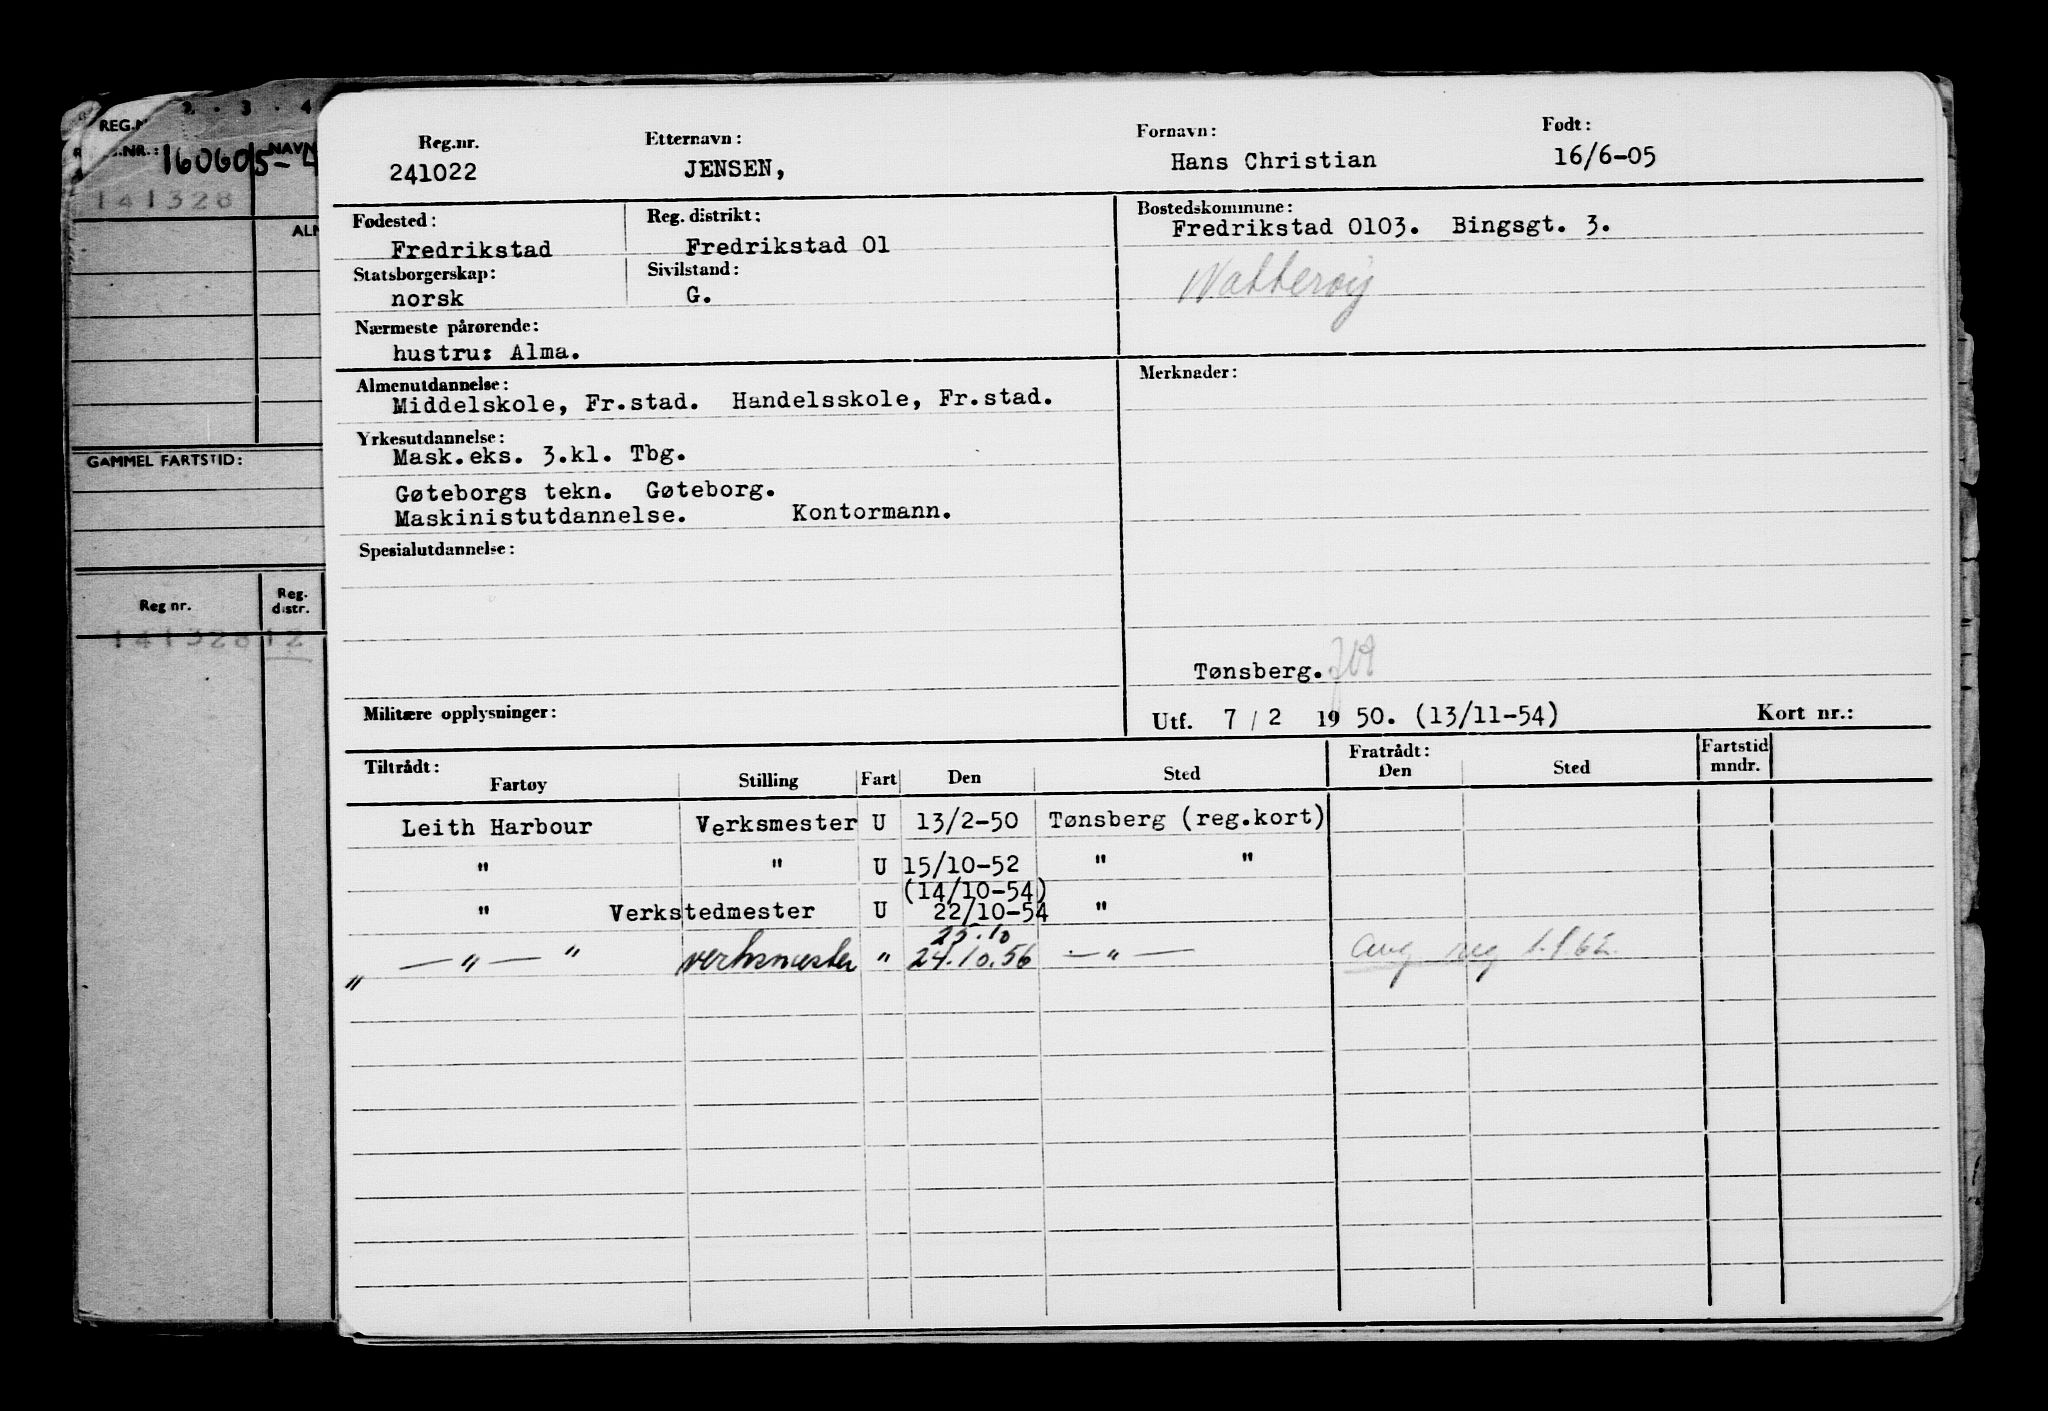 2 · 3 · 4
REG.N
.NR.: 160605- NAVN
141328
ALM
GAMMEL FARTSTID:
Reg nr. Reg. distr.
141328 12
Reg.nr. Etternavn: Fornavn: Født:
241022 JENSEN, Hans Christian 16/6-05
Fødested: Reg. distrikt: Bostedskommune:
Fredrikstad Fredrikstad 01 Fredrikstad 0103. Bingsgt. 3.
Statsborgerskap: Sivilstand:
norsk G. Nøtterøy
Nærmeste pårørende:
hustru: Alma.
Almenutdannelse: Merknader:
Middelskole, Fr.stad. Handelsskole, Fr.stad.
Yrkesutdannelse:
Mask.eks. 3.kl. Tbg.
Gøteborgs tekn. Gøteborg.
Maskinistutdannelse. Kontormann.
Spesialutdannelse:
Tønsberg.
Militære opplysninger: Utf. 7 / 2 19 50. (13/11-54) Kort nr.:
Tiltrådt: Fratrådt: Fartstid
Fartøy Stilling Fart Den Sted Den Sted mndr.
Leith Harbour Verksmester U 13/2-50 Tønsberg (reg.kort)
" " U 15/10-52 " "
(14/10-54)
" Verkstedmester U 22/10-54 "
25.10
" — " — " verksmester " 24.10.56 — " — avg. reg 1.1 62.